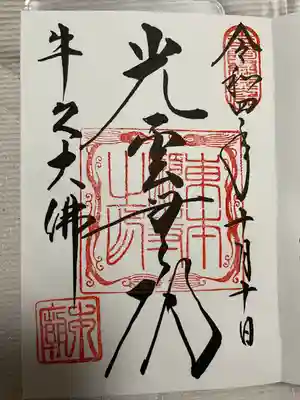 令和四年十月十日
光雲無
牛久大佛
東本
願寺
之印